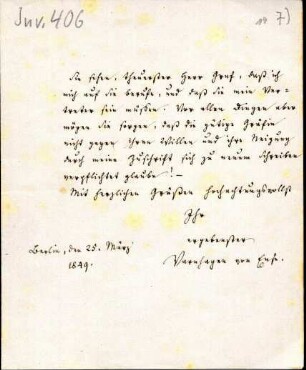 Inv. 406
7)
Sie sehen, theuerster Herr Graf, daß ich
mich auf Sie berufe, und daß Sie mein Ver-
treter sein müssen. Vor allen Dingen aber
mögen Sie sorgen, daß die gütige Gräfin
nicht gegen Ihren Willen und ihre Neigung
durch meine Zuschrift sich zu neuem Schreiben
verpflichtet glaube! —
Mit herzlichen Grüßen hochachtungsvollst
Ihr
ergebenster
Varnhagen von Ense.
Berlin, den 25. März
1849.